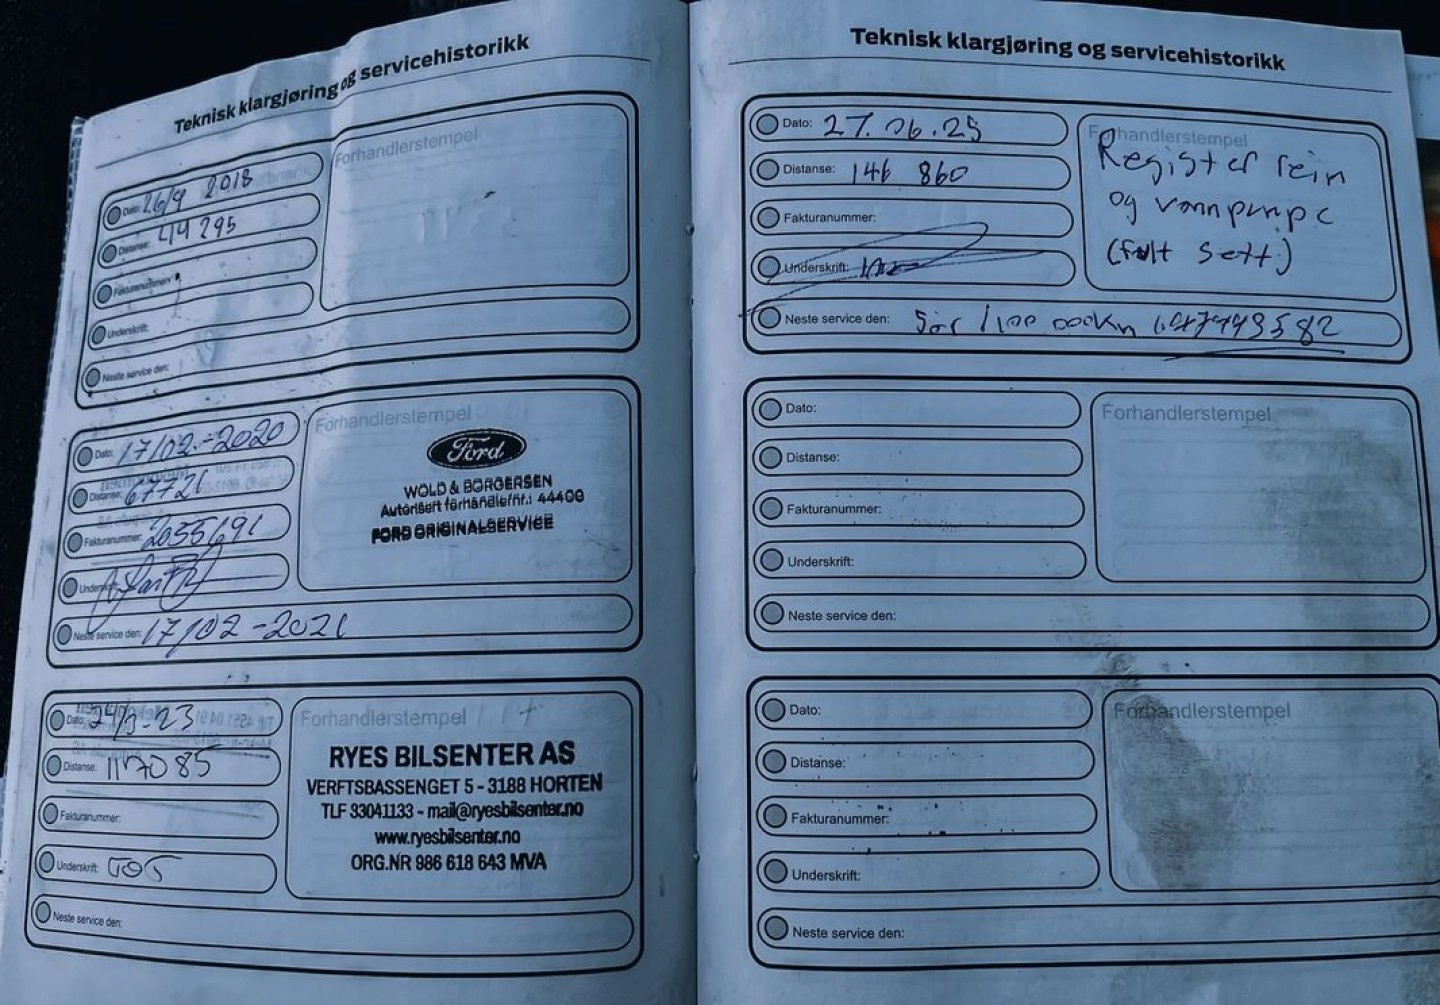 Teknisk klargjøring og servicehistorikk
Dato: 26/9 2018
Distanse: 44 295
Fakturanummer:
Underskrift:
Neste service den:
Forhandlerstempel
Dato: 17/02-2020
Distanse: 67721
Fakturanummer: 2055691
Underskrift:
Neste service den: 17/02-2021
Forhandlerstempel
Ford
WOLD & BORGERSEN
Autorisert forhandlefnr.: 44400
FORD ORIGINALSERVICE
Dato: 24/3-23
Distanse: 117085
Fakturanummer:
Underskrift:
Neste service den:
Forhandlerstempel
RYES BILSENTER AS
VERFTSBASSENGET 5 - 3188 HORTEN
TLF 33041133 - mail@ryesbilsenter.no
www.ryesbilsenter.no
ORG.NR 986 618 643 MVA
Teknisk klargjøring og servicehistorikk
Dato: 27.06.25
Distanse: 146 860
Fakturanummer:
Underskrift:
Neste service den: 5år
Forhandlerstempel
Register reim
og vannpumpe
(fult sett)
Dato:
Distanse:
Fakturanummer:
Underskrift:
Neste service den:
Forhandlerstempel
Dato:
Distanse:
Fakturanummer:
Underskrift:
Neste service den:
Forhandlerstempel